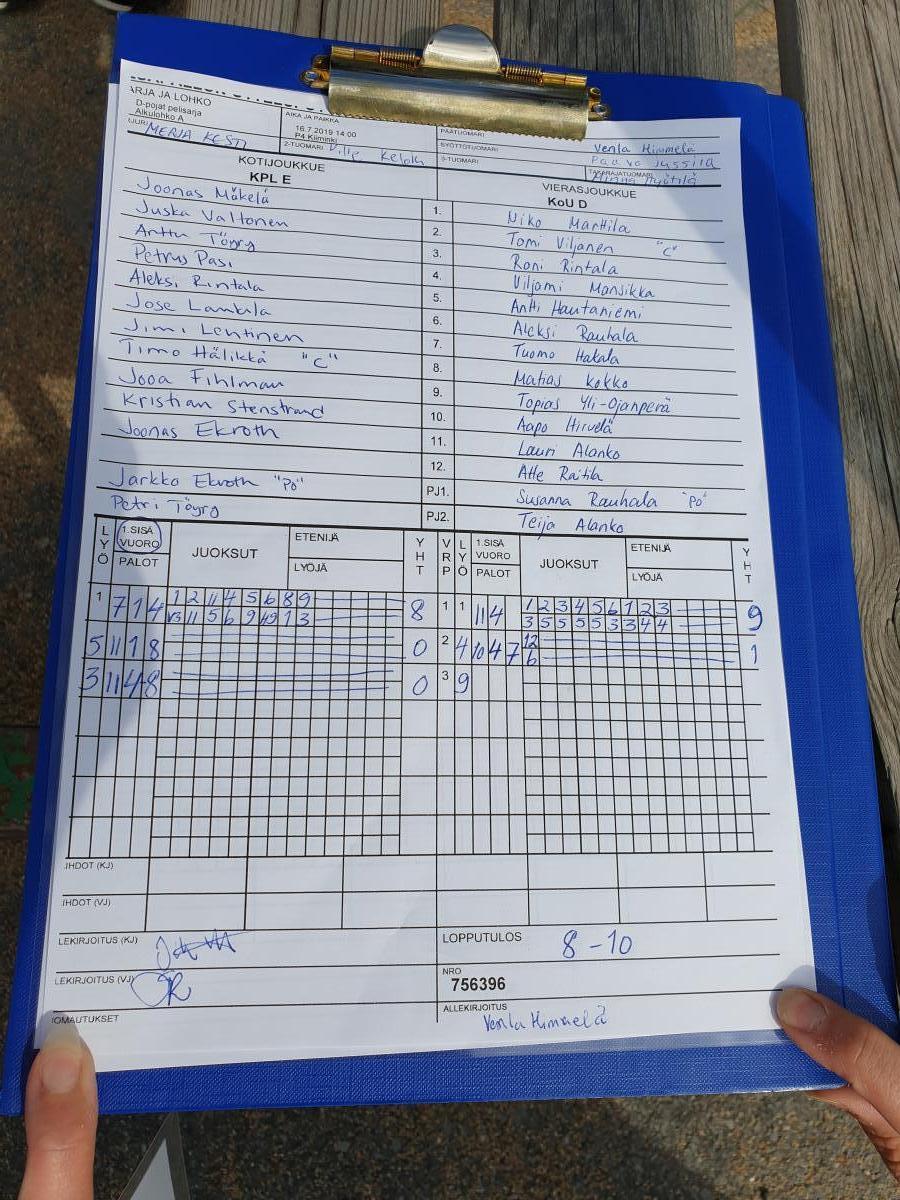 ARJA JA LOHKO
D-pojat pelisarja
Alkulohko A
MERJA KESTI
AIKA JA PAIKKA
16.7.2019 14:00
P4 Kiiminki
2-TUOMARI
PÄÄTUOMARI Venla Himmelä
SYÖTTÖTUOMARI Paavo Jussila
3-TUOMARI
TAKARAJATUOMARI
KOTIJOUKKUE
KPL E
VIERASJOUKKUE
KoU D
Joonas Mäkelä 1. Niko Marttila
Juska Valtonen 2. Tomi Viljanen "C"
Anttu Töyry 3. Roni Rintala
Petrus Pasi 4. Viljami Mansikka
Aleksi Rintala 5. Antti Hautaniemi
Jose Lankila 6. Aleksi Rauhala
Jimi Lehtinen 7. Tuomo Hakala
Timo Hälikkä "C" 8. Matias Kokko
Jooa Fihlman 9. Topias Yli-Ojanperä
Kristian Stenstrand 10. Aapo Hirvelä
Joonas Ekroth 11. Lauri Alanko
12. Atte Raitila
Jarkko Ekroth "PO" PJ1. Susanna Rauhala "PO"
Petri Töyry PJ2. Teija Alanko
LYÖ 1.SISÄ VUORO PALOT JUOKSUT ETENIJÄ LYÖJÄ YHT VRP LYÖ 1.SISÄ VUORO PALOT JUOKSUT ETENIJÄ LYÖJÄ YHT
1 7 1 4 1 2 11 4 5 6 8 9 8 1 1 11 4 1 2 3 4 5 6 1 2 3 9
3 5 5 5 5 3 3 4 4
5 11 1 8 0 2 4 10 4 7 12 1
6
3 11 4 8 0 3 9
IHDOT (KJ)
IHDOT (VJ)
LEKIRJOITUS (KJ)
LOPPUTULOS 8-10
LEKIRJOITUS (VJ)
NRO
756396
OMAUTUKSET
ALLEKIRJOITUS
Venla Himmelä